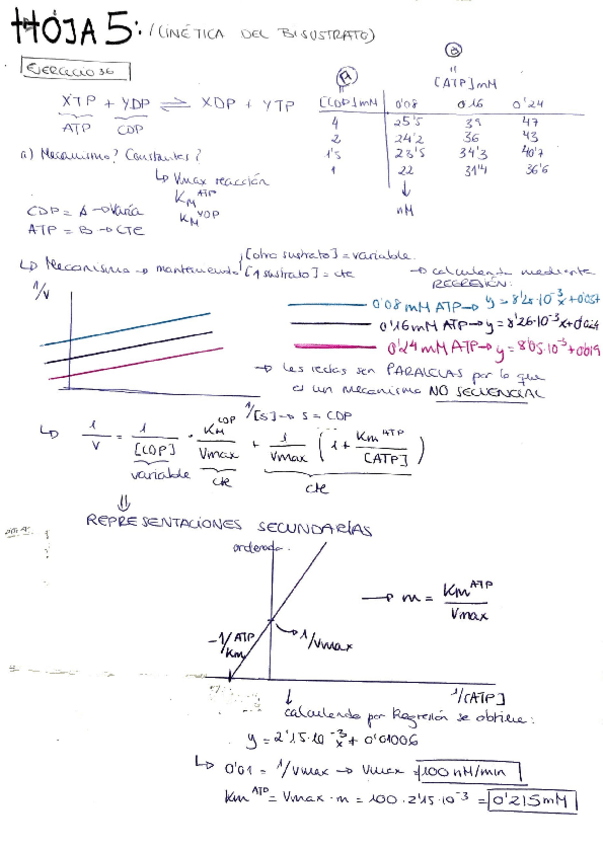 HOJA 5: (CINÉTICA DEL BISUSTRATO)
EJERCICIO 36
XTP + YDP ⇌ XDP + YTP
ATP CDP
a) Mecanismo? Constantes?
↳ Vmax reacción
KM ATP
KM YDP
CDP = A → Varía
ATP = B → Cte
A
B
[ATP] mM
[CDP] mM 0'08 0'16 0'24
4 25'5 39 47
2 24'2 36 43
1'5 23'5 34'3 40'7
1 22 31'4 36'6
nM
↳ Mecanismo → manteniendo [otro sustrato] = variable.
[1 sustrato] = cte
→ calculando mediante REGRESIÓN:
1/V
0'08 mM ATP → y = 8'25·10⁻³x + 0'037
0'16 mM ATP → y = 8'26·10⁻³x + 0'024
0'24 mM ATP → y = 8'05·10⁻³ + 0'019
→ Las rectas son PARALELAS por lo que
es un mecanismo NO SECUENCIAL
1/[S] → S = CDP
↳ 1/V = 1/[CDP] · KM CDP/Vmax + 1/Vmax (1 + Km ATP/[ATP])
variable cte cte
⇓
REPRESENTACIONES SECUNDARIAS
ordenada
→ m = Km ATP/Vmax
-1/Km ATP
→ 1/Vmax
1/[ATP]
calculando por Regresión se obtiene:
y = 2'15·10⁻³x + 0'01006
↳ 0'01 = 1/Vmax → Vmax = 100 nM/min
Km ATP = Vmax · m = 100 · 2'15·10⁻³ = 0'215 mM